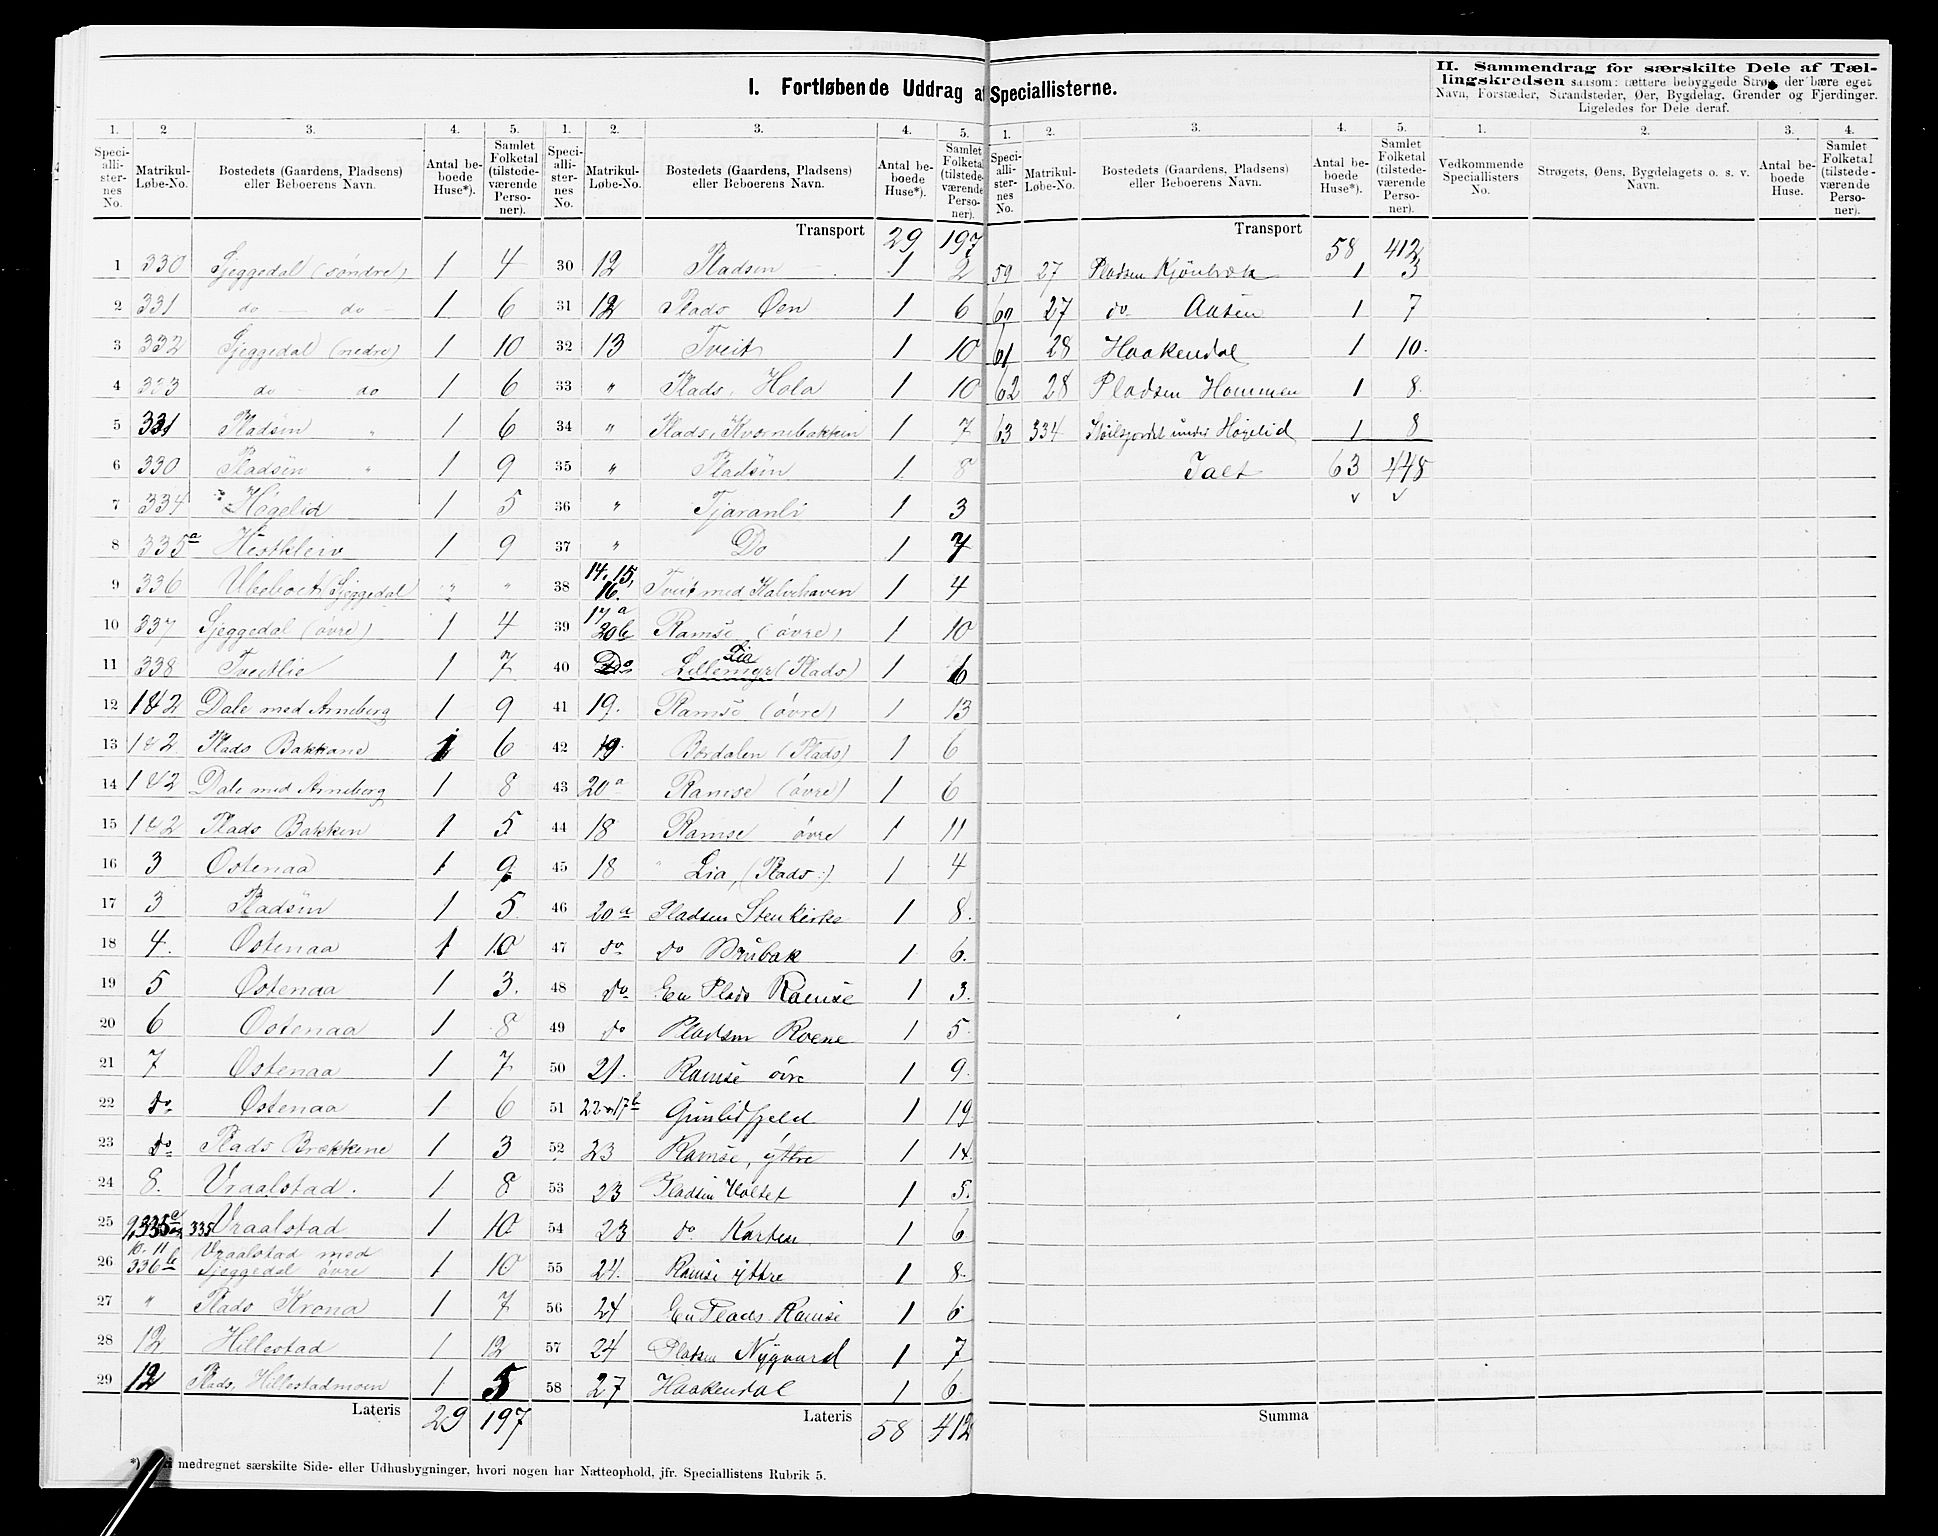 I. Fortløbende Uddrag af Speciallisterne.
II. Sammendrag for særskilte Dele af Tæl-
lingskredsen saasom: tættere bebyggede Strøg, der bære eget
Navn, Forstæder, Strandsteder, Øer, Bygdelag, Grender og Fjerdinger.
Ligeledes for Dele deraf.
1. 2. 3. 4. 5.
Speciallisternes No. Matrikul-Løbe-No. Bostedets (Gaardens, Pladsens) eller Beboerens Navn. Antal beboede Huse*). Samlet Folketal (tilstedeværende Personer).
1 330 Sjeggedal (søndre) 1 4
2 331 do — do — 1 6
3 332 Sjeggedal (nedre) 1 10
4 333 do — do 1 6
5 331 Pladsen " 1 6
6 330 Pladsen " 1 9
7 334 Høgelid 1 5
8 335a Hestkleiv 1 9
9 336 Ubeboet Sjeggedal " "
10 337 Sjeggedal (øvre) 1 4
11 338 Tveitlie 1 7
12 1&2 Dale med Arneberg 1 9
13 1&2 Plads Bakkane 1 6
14 1&2 Dale med Arneberg 1 8
15 1&2 Plads Bakken 1 5
16 3 Ostenaa 1 9
17 3 Pladsen 1 5
18 4. Ostenaa 1 10
19 5 Østenaa 1 3.
20 6 Ostenaa 1 8
21 7 Østenaa 1 7
22 do Østenaa 1 6
23 do Plads Brækkene 1 3
24 8. Vraalstad. 1 8
25 9, 335 Vraalstad 1 10
26 10. 11 336b Vraalstad med Sjeggedal øvre 1 10
27 " Plads Krona 1 7
28 12 Hillestad 1 12
29 12 Plads, Hillestadmoen 1 5
Lateris 29 197
1. 2. 3. 4. 5.
Speciallisternes No. Matrikul-Løbe-No. Bostedets (Gaardens, Pladsens) eller Beboerens Navn. Antal beboede Huse*). Samlet Folketal (tilstedeværende Personer).
Transport 29 197
30 12 Pladsen 1 2
31 12 Plads Øen 1 6
32 13 Tveit 1 10
33 " Plads, Hola 1 10
34 " Plads, Kvernebakken 1 7
35 " Pladsen 1 8
36 " Tjaranli 1 3
37 " Do 1 7
38 14. 15, 16. Tveit med Kalvehaven 1 4
39 17a 20b Ramse (øvre) 1 10
40 Do Lillemyr Lia (Plads) 1 6
41 19. Ramse (øvre) 1 13
42 19. Bordalen (Plads) 1 6
43 20a Ramse (øvre) 1 6
44 18 Ramse øvre 1 11
45 18 " Lia, (Plads:) 1 4
46 20a Pladsen Stenkirke 1 8.
47 do do Brubak 1 6.
48 do En Plads Ramse 1 3.
49 do Pladsen Roene 1 5.
50 21. Ramse øvre 1 9.
51 22 17b Gunlidfjeld 1 19
52 23 Ramse, ýttre 1 14.
53 23 Pladsen Holtet 1 5.
54 23 do 1 6
55 24. Ramse ÿttre 1 8.
56 24 En Plads Ramse 1 6
57 24 Pladsen Nÿgaard 1 7
58 27 Haakendal 1 6
Lateris 58 412
1. 2. 3. 4. 5.
Speciallisternes No. Matrikul-Løbe-No. Bostedets (Gaardens, Pladsens) eller Beboerens Navn. Antal beboede Huse*). Samlet Folketal (tilstedeværende Personer).
Transport 58 412
59 27 Pladsen 1 3
60 27 do Aasen 1 7
61 28 Haakendal 1 10.
62 28 Pladsen Hommen 1 8.
63 334 under Høgelid 1 8
Ialt 63 448
Summa
1. 2. 3. 4.
Vedkommende Speciallisters No. Strøgets, Øens, Bygdelagets o. s. v. Navn. Antal beboede Huse. Samlet Folketal (tilstedeværende Personer).
*) medregnet særskilte Side- eller Udhusbygninger, hvori nogen har Natteophold, jfr. Speciallistens Rubrik 5.